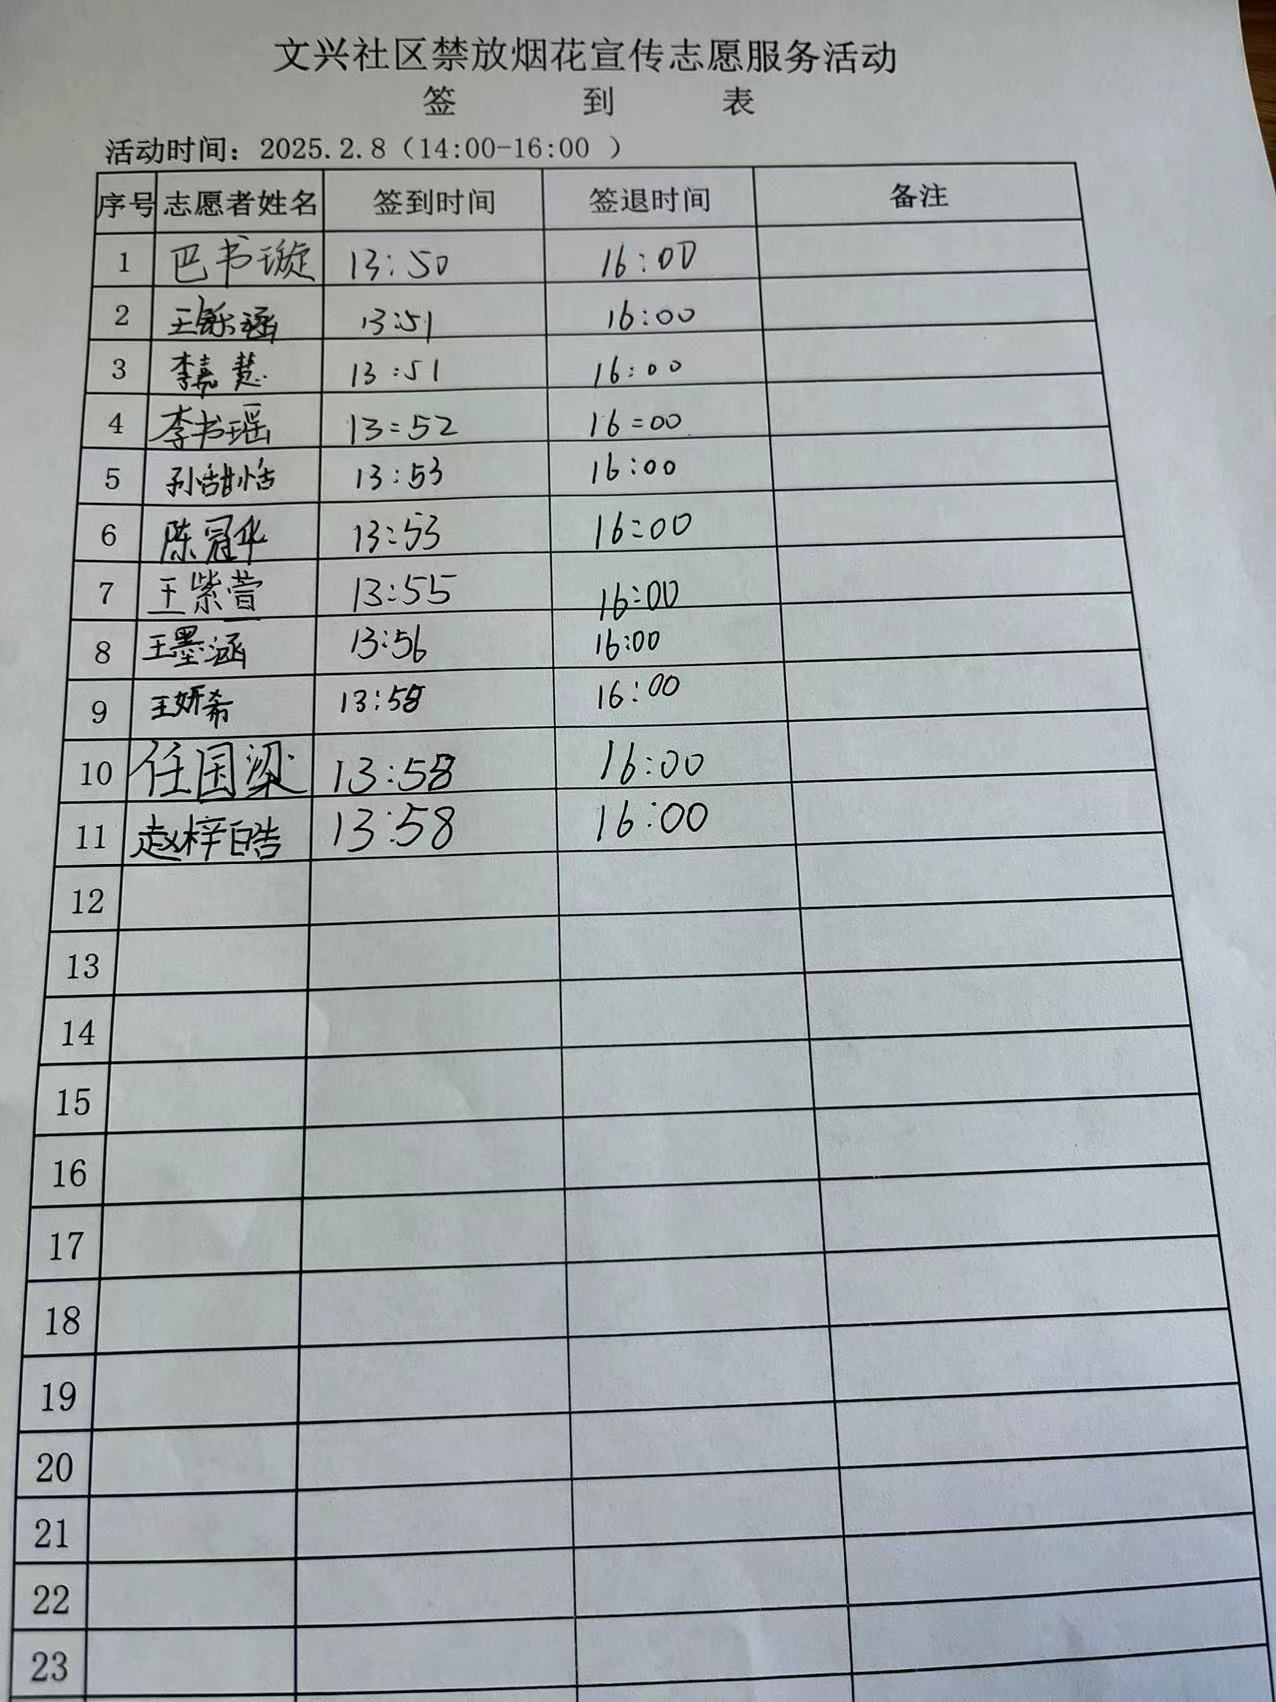 文兴社区禁放烟花宣传志愿服务活动
签 到 表
活动时间：2025.2.8（14:00-16:00 ）
序号 志愿者姓名 签到时间 签退时间 备注
1 巴书璇 13:50 16:00
2 王铄涵 13:51 16:00
3 李嘉慧 13:51 16:00
4 李书瑶 13:52 16:00
5 孙甜恬 13:53 16:00
6 陈冠华 13:53 16:00
7 王紫萱 13:55 16:00
8 王墨涵 13:56 16:00
9 王妍希 13:58 16:00
10 任国梁 13:58 16:00
11 赵梓皓 13:58 16:00
12
13
14
15
16
17
18
19
20
21
22
23